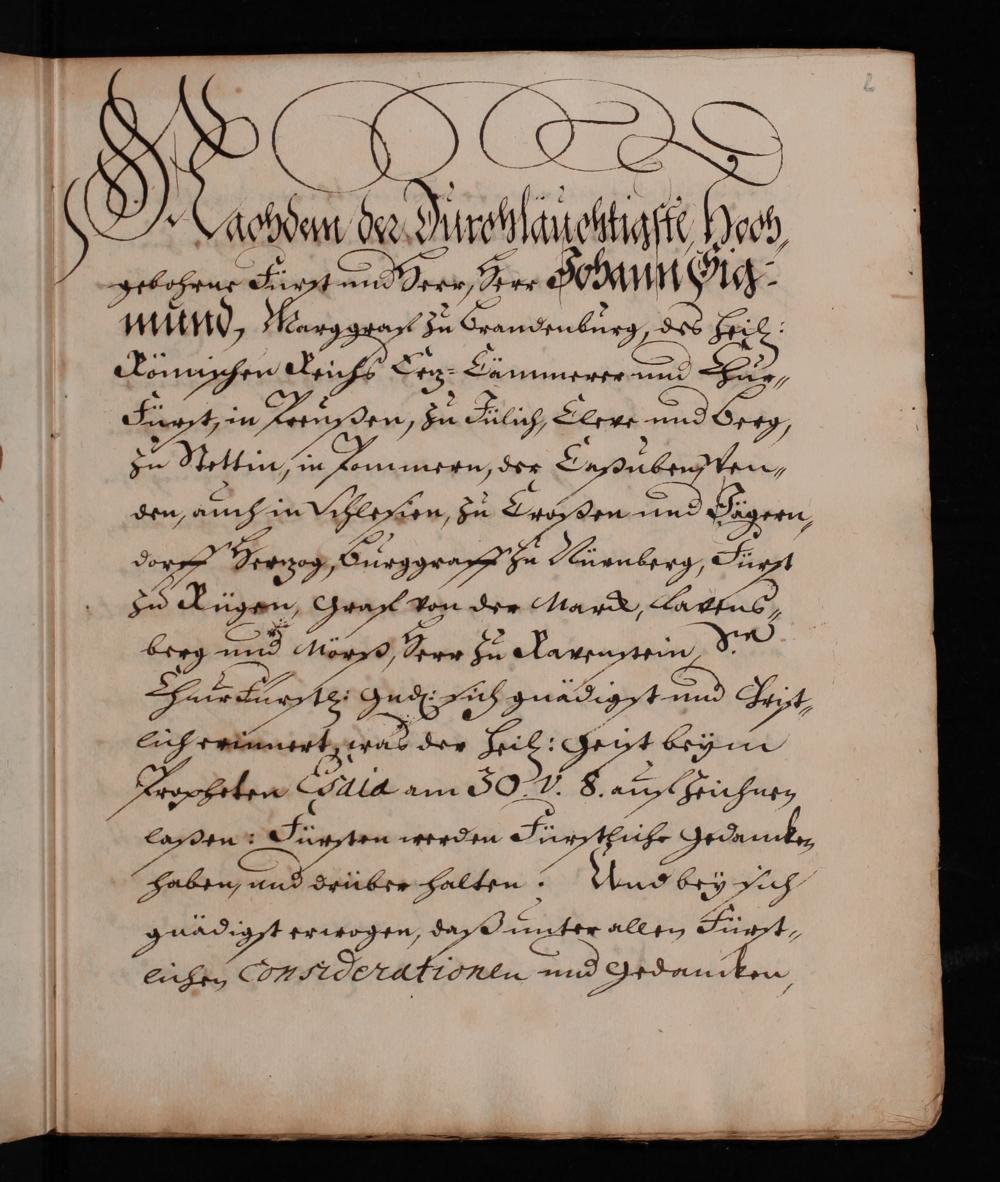 2
Nachdem der Durchläuchtigste, Hoch„
gebohrne Fürst und Herr, Herr Johann Sig=
mund, Marggraf zu Brandenburg, des Heil:
Römischen Reichs Ertz=Cämmerer und Chur„
Fürst, in Preußen, zu Jülich, Cleve und Berg,
zu Stettin, in Pommern, der Caßuben, Wen„
den, auch in Schlesien, zu Croßen und Jägern„
dorff Hertzog, Burggraff zu Nürnberg, Fürst
zu Rügen, Graf von der Marck, Ravens„
berg und Mörß, Herr zu Ravenstein, Se
ChurFürstl: Gnd: sich gnädigst und Christ„
lich erinnert, was der Heil: Geist beym
Propheten Esaia am 30. v. 8. aufzeichnen
laßen: Fürsten werden Fürstliche Gedancken
haben, und drüber halten. Und bey sich
gnädigst erwogen, daß unter allen Fürst„
lichen Considerationen und Gedancken,